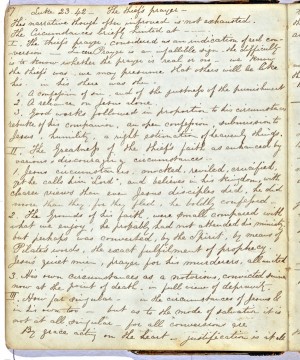 Luke 23. 42. The thief's prayer —
This narrative though often improved is not exhausted.
The Circumstances briefly hinted at —
I. The thief's prayer, considered as an indication of real con-
version. — True Prayer is an infallible sign, the difficulty
is to know whether the prayer is real or no — we know
the thief's was. we may presume that others will be like
his — in his there was then
1. A confession of sin — and of the justness of the punishment
2. A reliance on Jesus alone.
3. Good works followed in proportion to his circumstance
rebuke of his companion, an open confession, submission to
Jesus, humility, a right estimation of heavenly things.
II. The Greatness of the thief's faith as enhanced by
various discouraging circumstances —
1. Jesus circumstances, mocked, reviled, crucified,
yet he calls him Lord, and believes in his kingdom with
clearer views than even Jesus disciples did, he did
more than they for they fled, he boldly confessed —
2. The Grounds of his faith, were small compared with
what we enjoy, he probably had not attended his ministry
but perhaps was converted, by the Spirit by means of
Pilate's words, the exact fulfilment of prophecy,
Jesus' quiet mien, prayer for his murderers, all united
3. His own circumstances as a notorious, convicted sinner
now at the point of death. in full view of depravity —
III. How far singular — in the circumstances of Jesus &
in his own too — but as to the mode of salvation it is
not at all singular for all conversions are
By grace acting on the heart — justification is at all